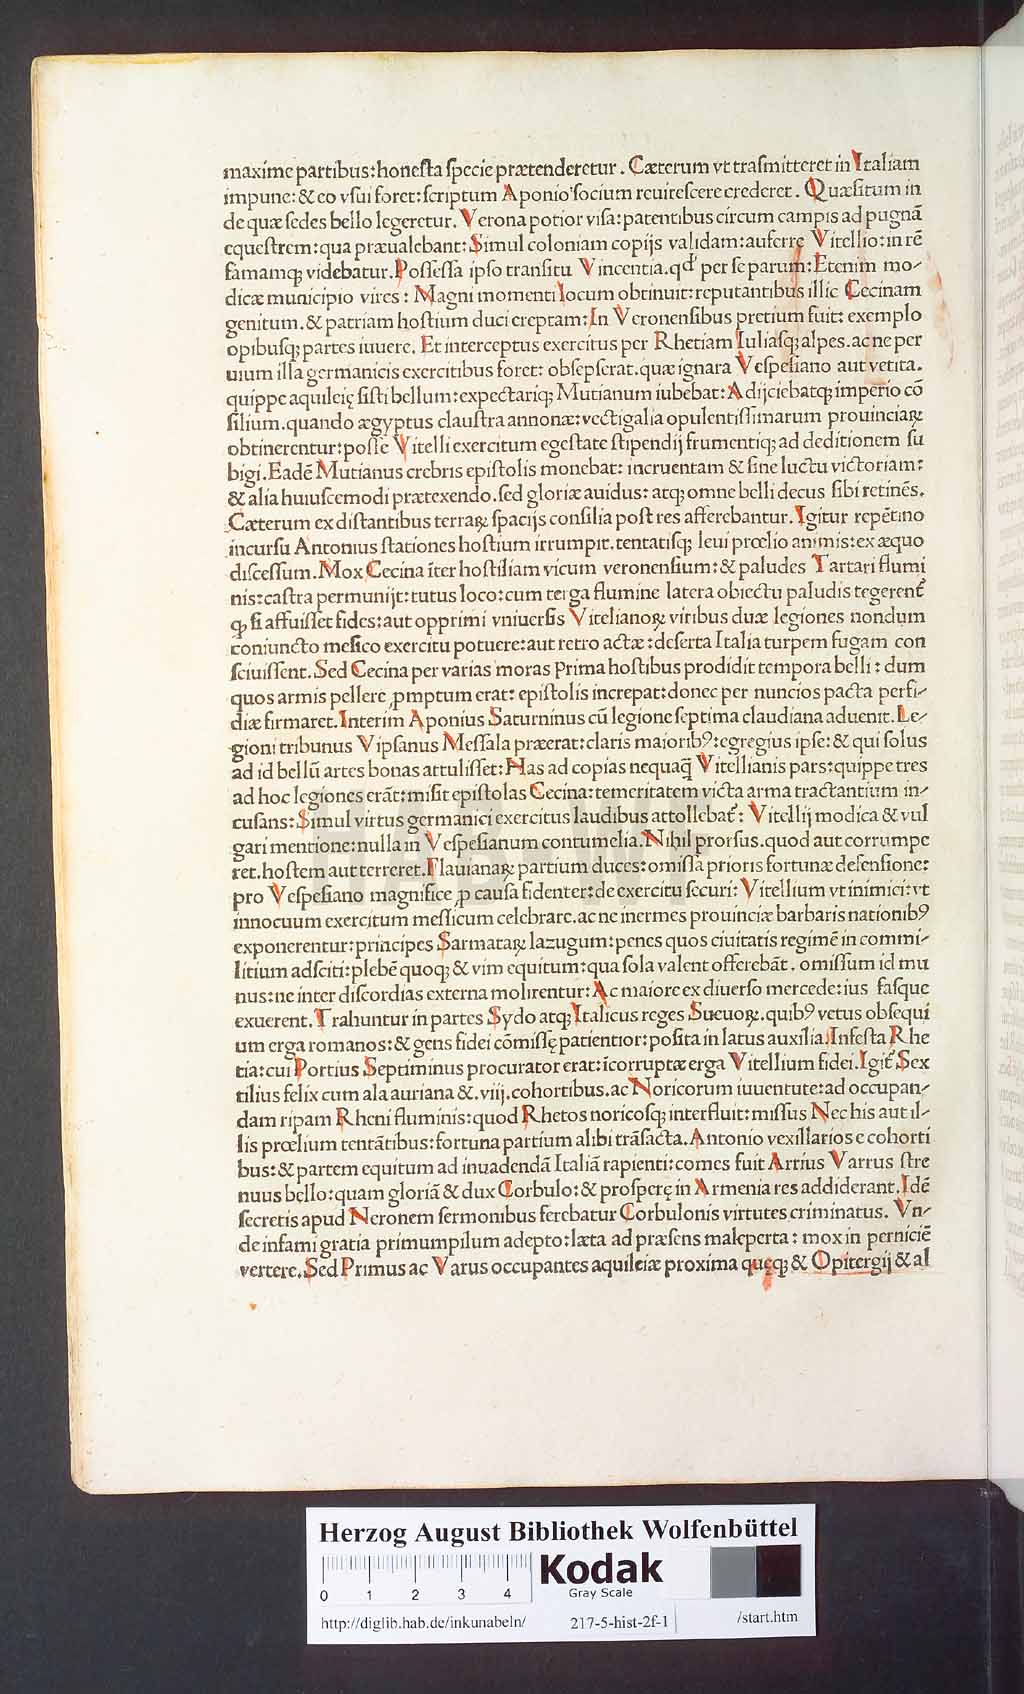 maxime partibus: honesta specie prætenderetur. Cæterum vt trāsmitteret in Italiam
impune: & eo vsui foret: scriptum Aponio socium reuitescere crederet. Quæsitum in
de quæ sedes bello legeretur. Verona potior visa: patentibus circum campis ad pugnā
equestrem: qua præualebant: Simul coloniam copijs validam: auferre Vitellio: in rē
famamqꝫ videbatur. Possessa ipso transitu Vincentia. qđ per se parum: Etenim mo-
dicæ municipio vires: Magni momenti locum obtinuit: reputantibus illic Cecinam
genitum. & patriam hostium duci ereptam: In Veronensibus pretium fuit: exemplo
opibusqꝫ partes iuuere. Et interceptus exercitus per Rhetiam Iuliasqꝫ alpes. ac ne per
uium illa germanicis exercitibus foret: obsepserat. quæ ignara Vespesiano aut vetita.
quippe aquileię sisti bellum: expectariqꝫ Mutianum iubebat: Adijciebatqꝫ imperio cō
silium. quando ægyptus claustra annonæ: vectigalia opulentissimarum prouinciaꝝ
obtinerentur: posse Vitelli exercitum egestate stipendij frumentiqꝫ ad deditionem su
bigi. Eadē Mutianus crebris epistolis monebat: incruentam & sine luctu victoriam:
& alia huiuscemodi prætexendo. sed gloriæ auidus: atqꝫ omne belli decus sibi retinēs.
Cæterum ex distantibus terraꝝ spacijs consilia post res afferebantur. Igitur repētino
incursu Antonius stationes hostium irrumpit. tentatisqꝫ leui prœlio animis: ex æquo
discessum. Mox Cecina īter hostiliam vicum veronensium: & paludes Tartari flumi
nis: castra permunijt: tutus loco: cum terga flumine latera obiectu paludis tegerent᷑
qꝫ si affuisset fides: aut opprimi vniuersis Vitelianoꝝ viribus duæ legiones nondum
coniuncto mesico exercitu potuere: aut retro actæ: deserta Italia turpem fugam con
sciuissent. Sed Cecina per varias moras prima hostibus prodidit tempora belli: dum
quos armis pellere ꝓmptum erat: epistolis increpat: donec per nuncios pacta perfi-
diæ firmaret. Interim Aponius Saturninus cū legione septima claudiana aduenit. Le-
gioni tribunus Vipsanus Messala præerat: claris maioribꝰ: egregius ipse: & qui solus
ad id bellū artes bonas attulisset: Has ad copias nequaq̄ Vitellianis pars: quippe tres
ad hoc legiones erāt: misit epistolas Cecina: temeritatem victa arma tractantium in-
cusans: Simul virtus germanici exercitus laudibus attollebat᷑: Vitellij modica & vul
gari mentione: nulla in Vespesianum contumelia. Nihil prorsus. quod aut corrumpe
ret. hostem aut terreret. Flauianaꝝ partium duces: omissa prioris fortunæ defensione:
pro Vespesiano magnifice ꝓ causa fidenter: de exercitu securi: Vitellium vt inimici: vt
innocuum exercitum messicum celebrare. ac ne inermes prouinciæ barbaris nationibꝰ
exponerentur: principes Sarmataꝝ lazugum: penes quos ciuitatis regimē in commi-
litium adsciti: plebē quoqꝫ & vim equitum: qua sola valent offerebāt. omissum id mu
nus: ne inter discordias externa molirentur: Ac maiore ex diuerso mercede: ius fasque
exuerent. Trahuntur in partes Sydo atqꝫ Italicus reges Sueuoꝝ. quibꝰ vetus obsequi
um erga romanos: & gens fidei cōmissę patientior: posita in latus auxilia. Infesta Rhe
tia: cui Portius Septiminus procurator erat: īcorruptæ erga Vitellium fidei. Igit᷑ Sex
tilius felix cum ala auriana & .viij. cohortibus. ac Noricorum iuuentute: ad occupan-
dam ripam Rheni fluminis: quod Rhetos noricosqꝫ interfluit: missus Nec his aut il-
lis prœlium tentātibus: fortuna partium alibi trāsacta. Antonio vexillarios e cohorti
bus: & partem equitum ad inuadendā Italiā rapienti: comes fuit Arrius Varrus stre
nuus bello: quam gloriā & dux Corbulo: & prosperę in Armenia res addiderant. Idē
secretis apud Neronem sermonibus ferebatur Corbulonis virtutes criminatus. Vn-
de infami gratia primumpilum adepto: læta ad præsens male parta: mox in perniciē
vertere. Sed Primus ac Varus occupantes aquileiæ proxima quęqꝫ & Opitergij & al
Herzog August Bibliothek Wolfenbüttel
0 1 2 3 4 Kodak
Gray Scale
http://diglib.hab.de/inkunabeln/ 217-5-hist-2f-1 /start.htm